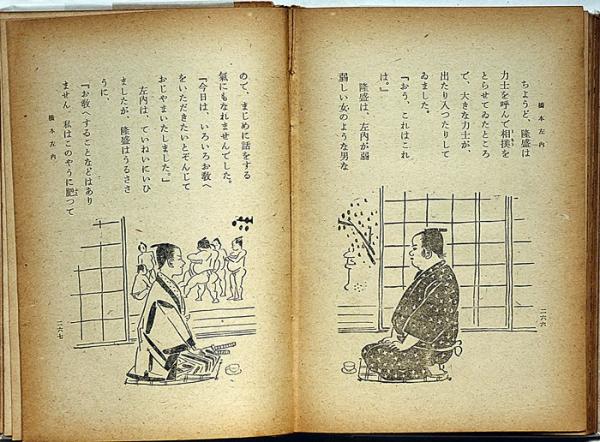 橋本左内
ちようど、隆盛は
力士を呼んで相撲を
とらせてゐたところ
で、大きな力士が、
出たり入つたりして
ゐました。
「おう、これはこれ
は。」
隆盛は、左內が弱
弱しい女のような男な
二六六
ので、まじめに話をする
氣にもなれませんでした。
「今日は、いろいろお敎へ
をいただきたいとぞんじて
おじやまいたしました。」
左內は、ていねいにいひ
ましたが、隆盛はうるささ
うに、
「お敎へすることなどはあり
ません 私はこのやうに肥つて
橋本左內
二六七